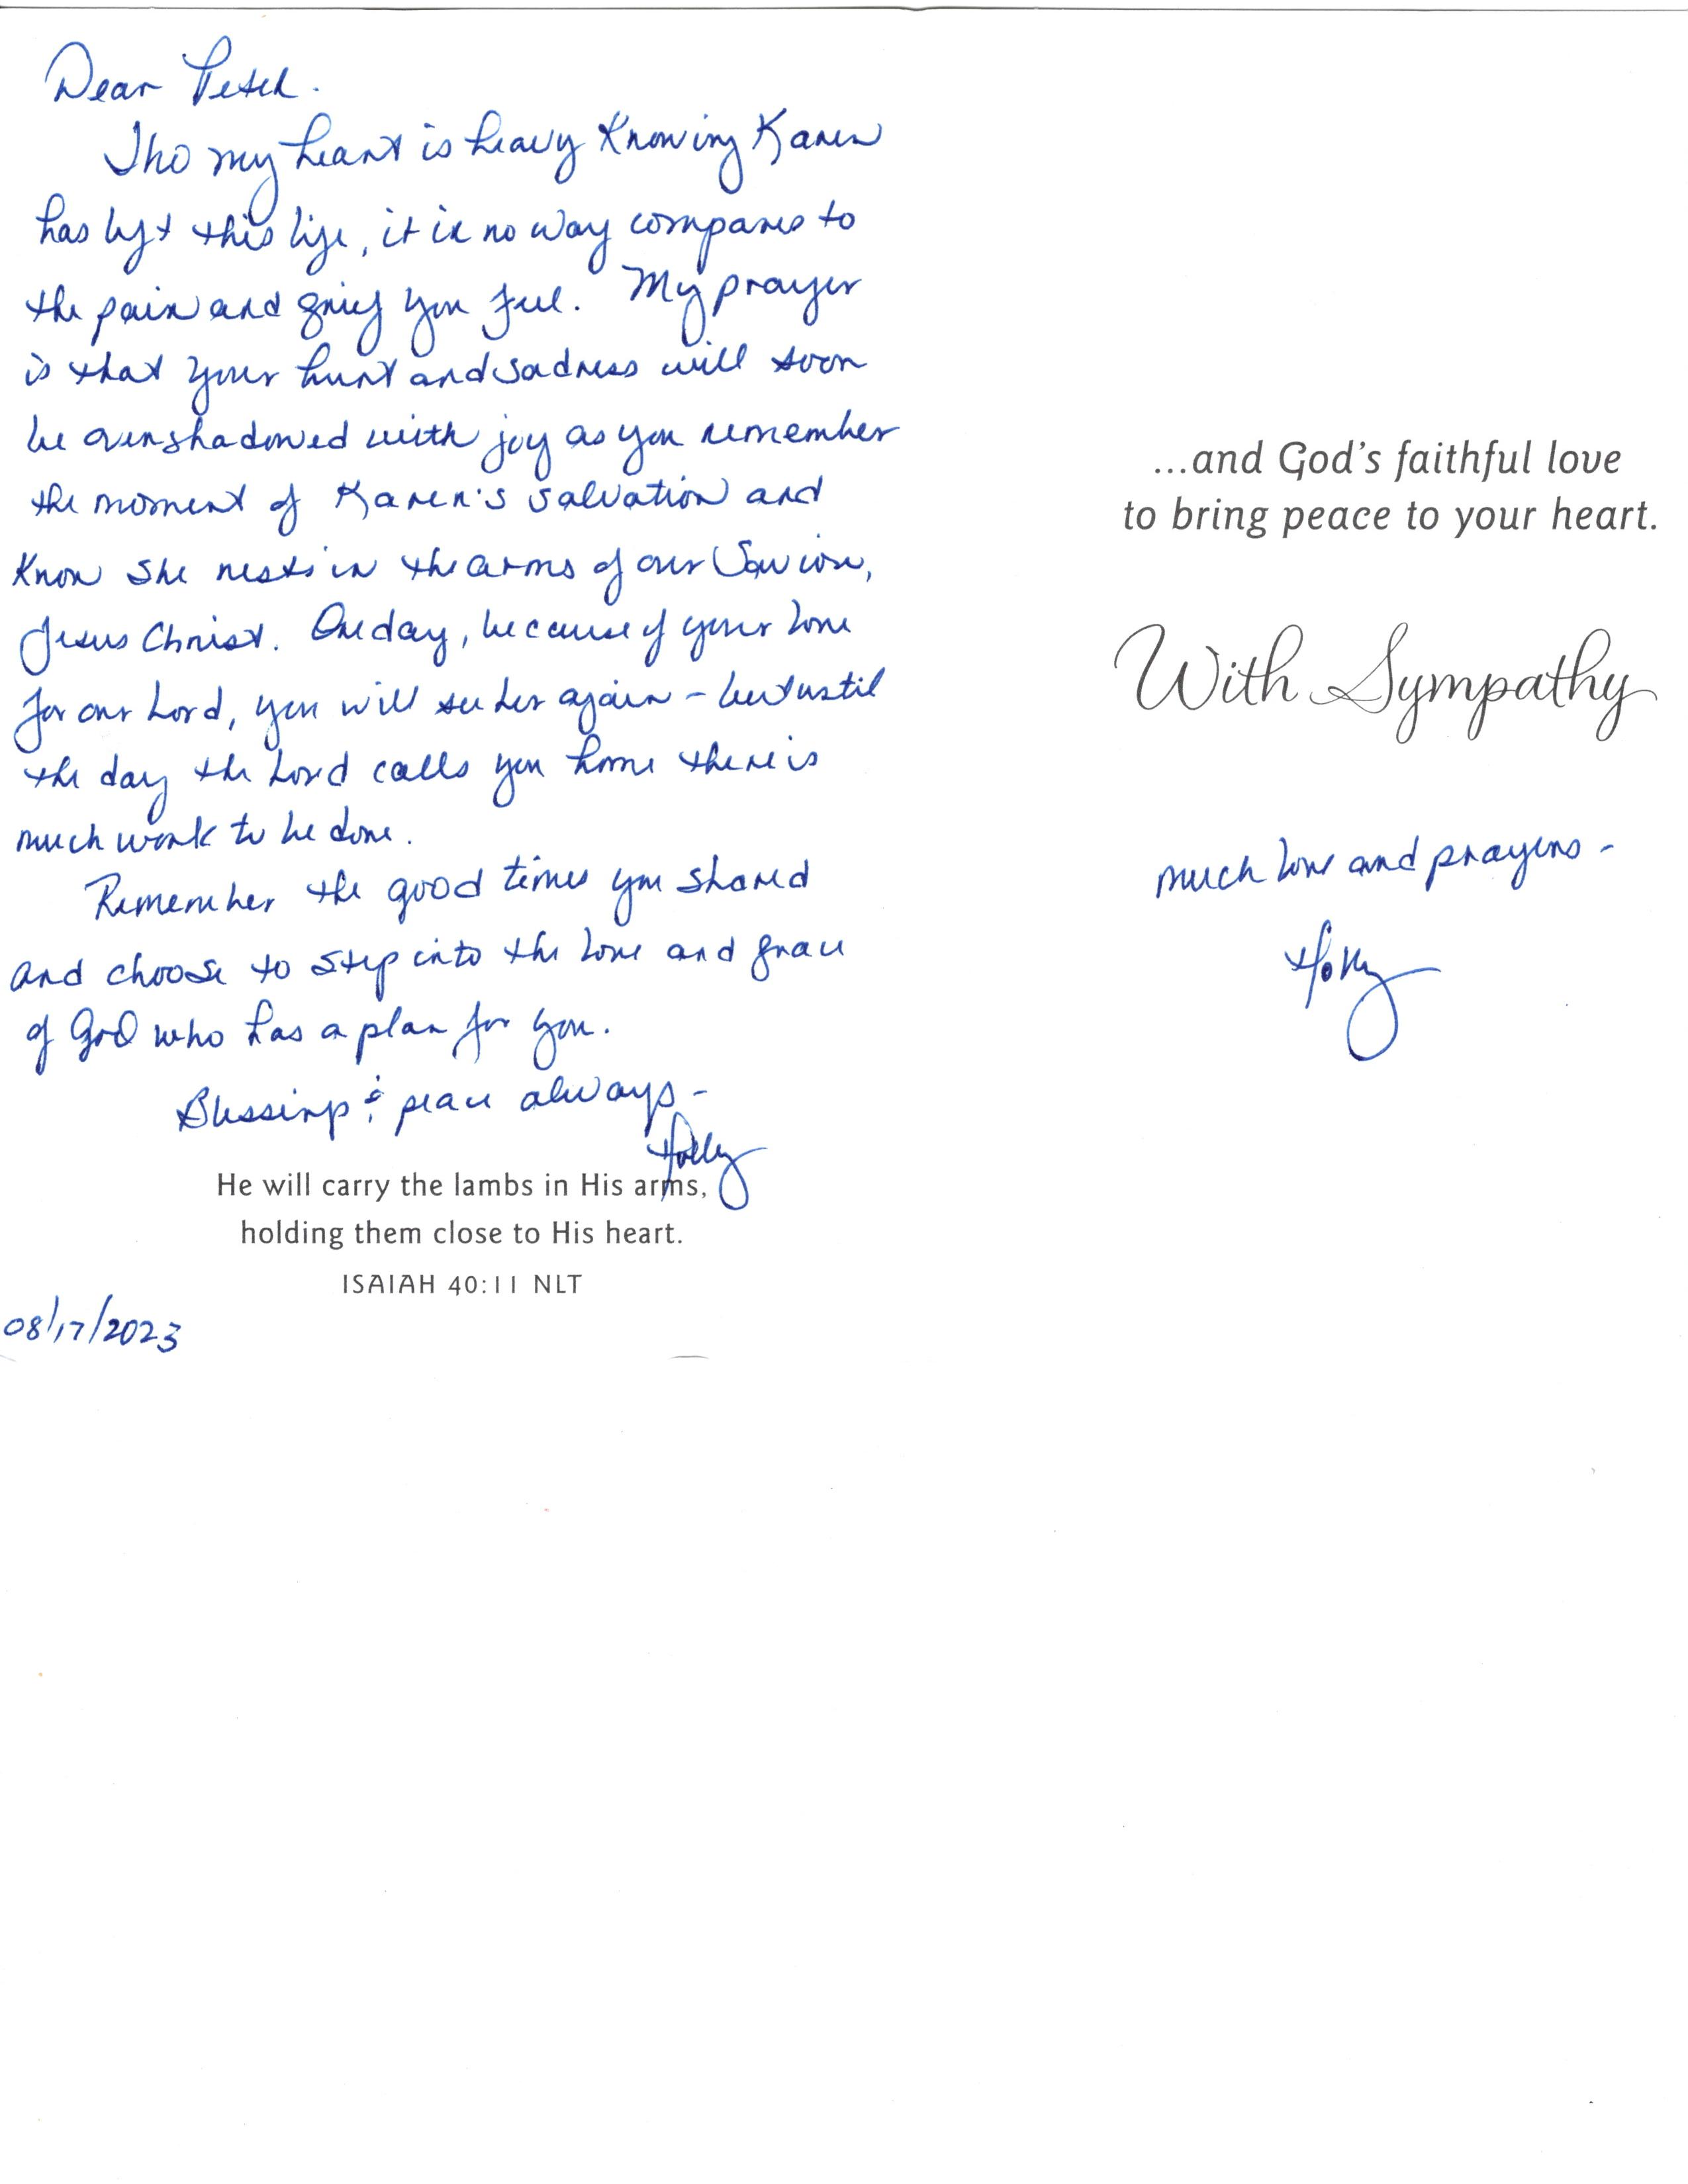 Dear Peter.
Tho my heart is heavy knowing Karen
has left this life, it in no way compares to
the pain and grief you feel. My prayer
is that your hurt and sadness will soon
be overshadowed with joy as you remember
the moment of Karen's salvation and
know she rests in the arms of our Savior,
Jesus Christ. One day, because of your love
for our Lord, you will see her again - but until
the day the Lord calls you home there is
much work to be done.
Remember the good times you shared
and choose to step into the love and grace
of God who has a plan for you.
Blessings & peace always -
Holly
He will carry the lambs in His arms,
holding them close to His heart.
ISAIAH 40:11 NLT
08/17/2023
...and God's faithful love
to bring peace to your heart.
With Sympathy
much love and prayers -
Holly